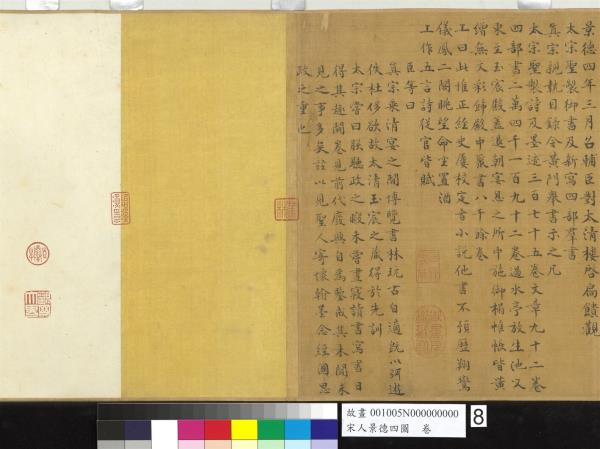 景德四年三月召輔臣對太清樓啓扃饋觀
太宗聖製御書及新寫四部羣書
真宗親執目錄令黃門舉書示之凡
太宗聖製詩及墨迹三百七十五卷文章九十二卷
四部書二萬四千一百九十二卷過水亭放生池又
東至玉宸殿蓋退朝宴息之所中施御榻帷帳皆黃
繒無文彩飾殿中聚書八千餘卷
上曰此惟正經史屢校定者小說他書不預歷翔鸞
儀鳳二閣眺望命坐置酒
上作五言詩從官皆賦
臣等曰
真宗乘清宴之閒博覽書林玩古自適旣以
佚杜侈欲故太清玉宸之藏得於先訓
太宗嘗曰朕聽政之暇未嘗晝寢讀書寫書日
得其趣開卷見前代廢興自爲鑒戒其未聞未
見之事多矣詮以見聖人寄懷翰墨念經圖思
政之重也
故畫 001005N000000000
宋人景德四圖 卷
8